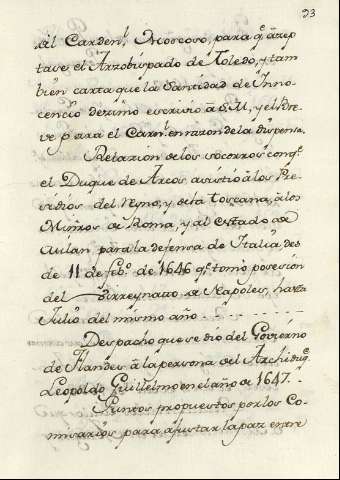 93
al Carden.l Moscoso, para q.e azep
tase el Arzobispado de Toledo, y tam
bien carta que la Santidad de Ino
cencio dezimo escrivio a S.M. y el Bre
ve para el Carn.l en razon de la dispensa.
Relazion de los socorros con q.e
el Duque de Arcos asistio a los Pre
sidios del Reyno, y de la Toscana, a los
Mtros de Roma, y al estado de
Milan para la defensa de Italia, des
de 11 de feb.o de 1646 q.e tomo posesion
del Virreynato de Napoles, hasta
Julio del mismo año . . . . . . . .
Despacho que se dio del Govierno
de Flandes a la persona del Archiduq.e
Leopoldo Guillelmo en el año de 1647. .
Puntos propuestos por los Co
misarios para ajustar la paz entre